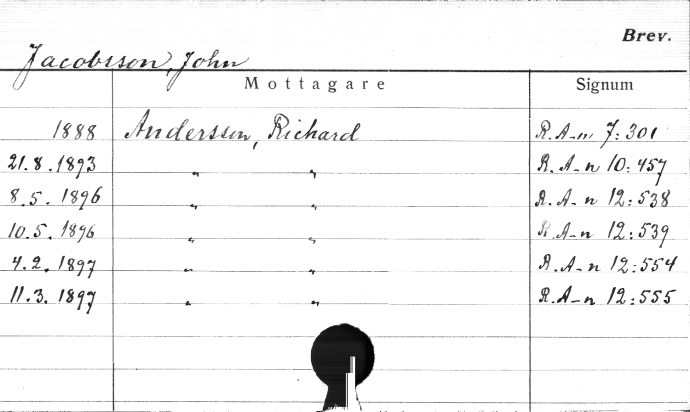 Brev.
Jacobsson, John
Mottagare Signum
1888 Andersson, Richard R.A-n 7:301
21.8.1893 " " R.A-n 10:457
8.5.1896 " " R.A-n 12:538
10.5.1896 " " R.A-n 12:539
4.2.1897 " " R.A-n 12:554
11.3.1897 " " R.A-n 12:555